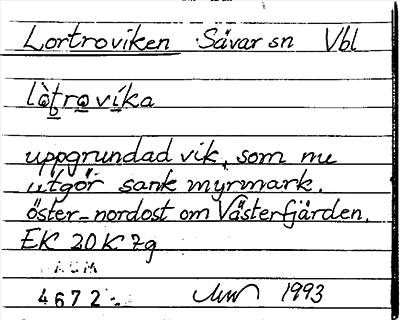 Lortroviken Sävar sn Vbl
lòṭro̲vi̲ka
uppgrundad vik, som nu
utgör sank myrmark.
öster-nordost om Västerfjärden.
EK 20K7g
4672 1993